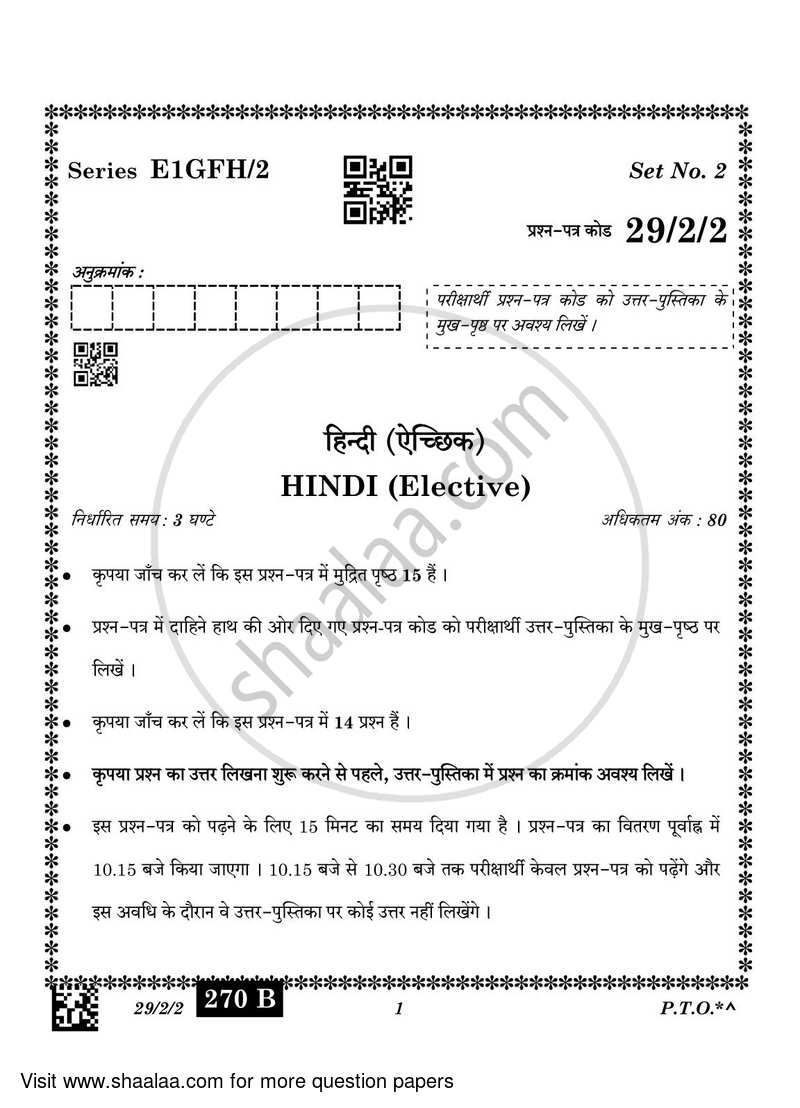 Series E1GFH/2
Set No. 2
प्रश्न-पत्र कोड 29/2/2
अनुक्रमांक :
परीक्षार्थी प्रश्न-पत्र कोड को उत्तर-पुस्तिका के
मुख-पृष्ठ पर अवश्य लिखें ।
हिन्दी (ऐच्छिक)
HINDI (Elective)
निर्धारित समय : 3 घण्टे
अधिकतम अंक : 80
• कृपया जाँच कर लें कि इस प्रश्न-पत्र में मुद्रित पृष्ठ 15 हैं ।
• प्रश्न-पत्र में दाहिने हाथ की ओर दिए गए प्रश्न-पत्र कोड को परीक्षार्थी उत्तर-पुस्तिका के मुख-पृष्ठ पर
लिखें ।
• कृपया जाँच कर लें कि इस प्रश्न-पत्र में 14 प्रश्न हैं ।
• कृपया प्रश्न का उत्तर लिखना शुरू करने से पहले, उत्तर-पुस्तिका में प्रश्न का क्रमांक अवश्य लिखें ।
• इस प्रश्न-पत्र को पढ़ने के लिए 15 मिनट का समय दिया गया है । प्रश्न-पत्र का वितरण पूर्वाह्न में
10.15 बजे किया जाएगा । 10.15 बजे से 10.30 बजे तक परीक्षार्थी केवल प्रश्न-पत्र को पढ़ेंगे और
इस अवधि के दौरान वे उत्तर-पुस्तिका पर कोई उत्तर नहीं लिखेंगे ।
shaalaa.com
29/2/2
270 B
1
P.T.O.*^
Visit www.shaalaa.com for more question papers